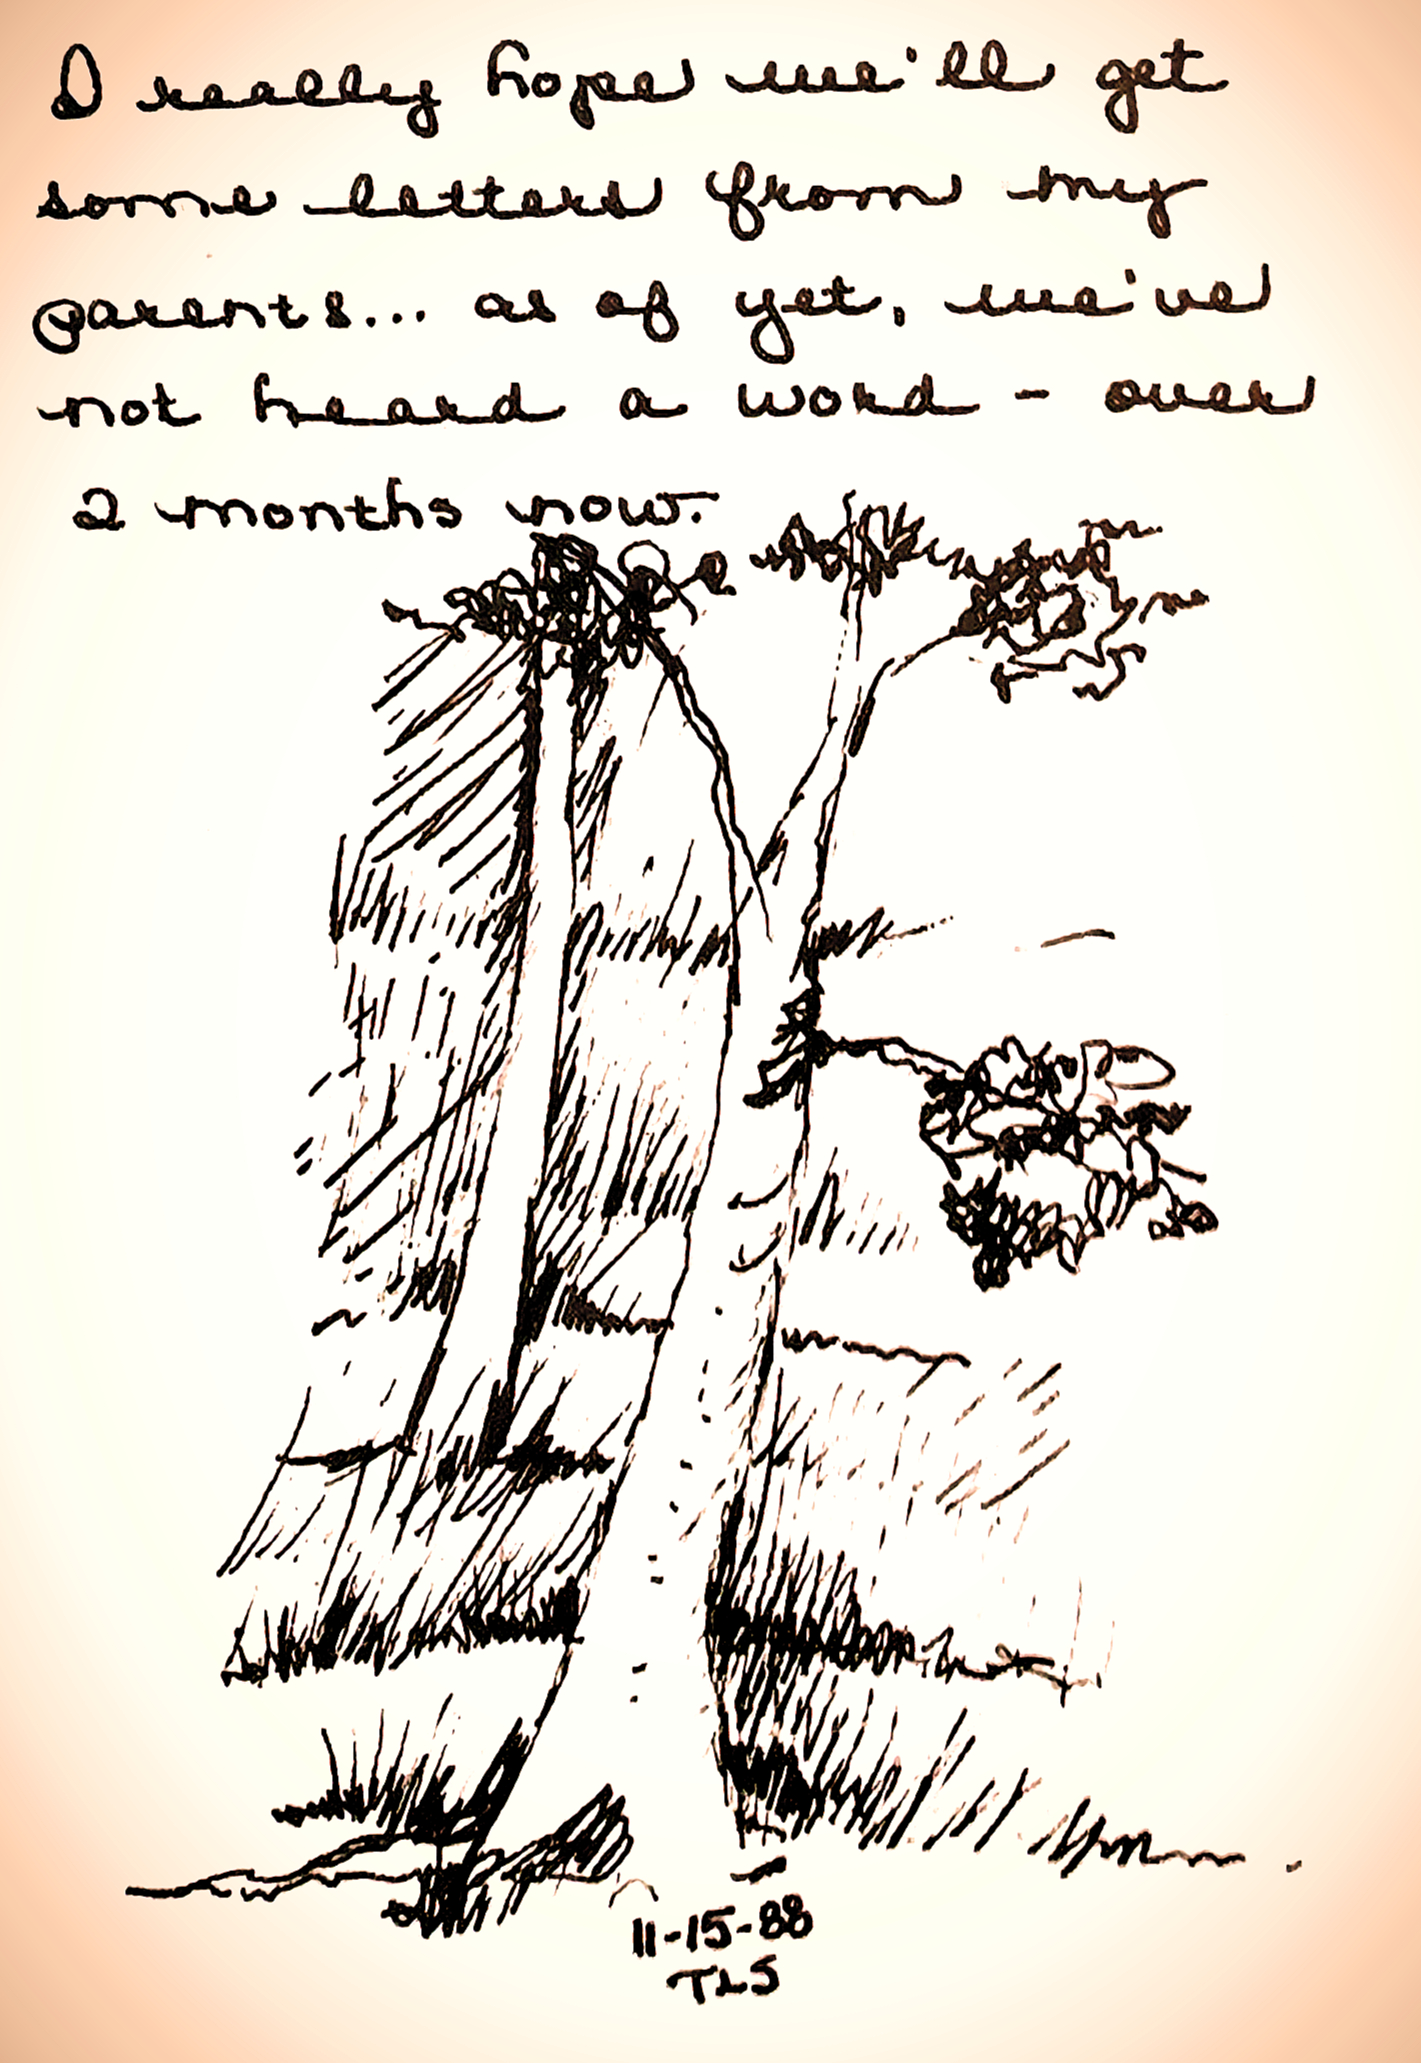 I really hope we'll get
some letters from my
parents... as of yet, we've
not heard a word - over
2 months now.
11-15-88
TLS